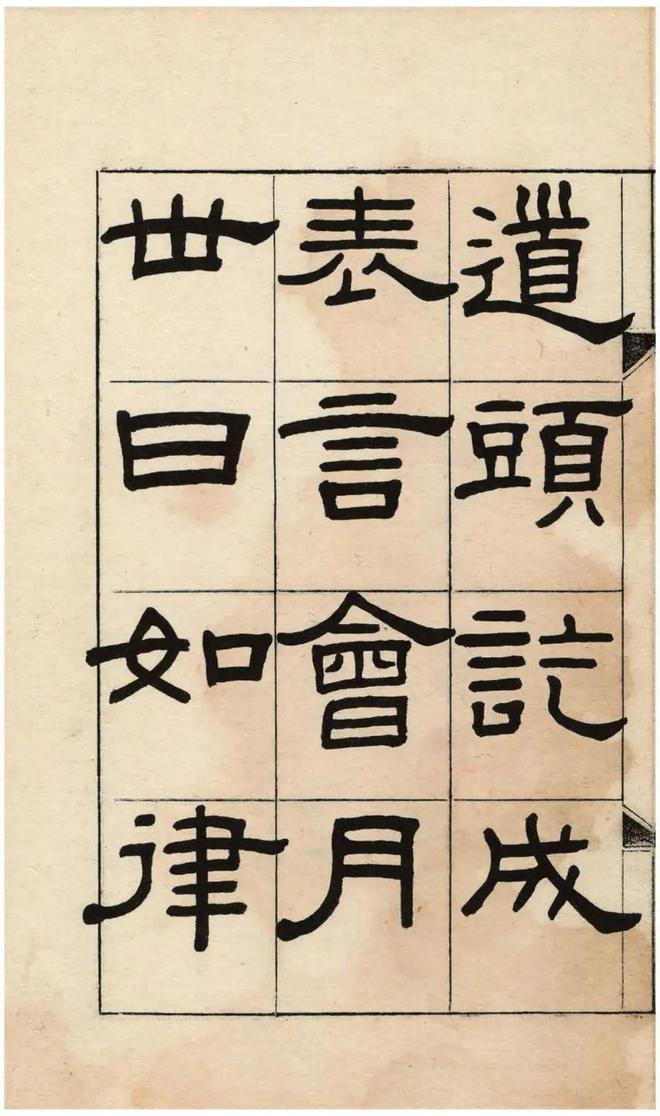 道頭訖成
表言會月
丗日如律